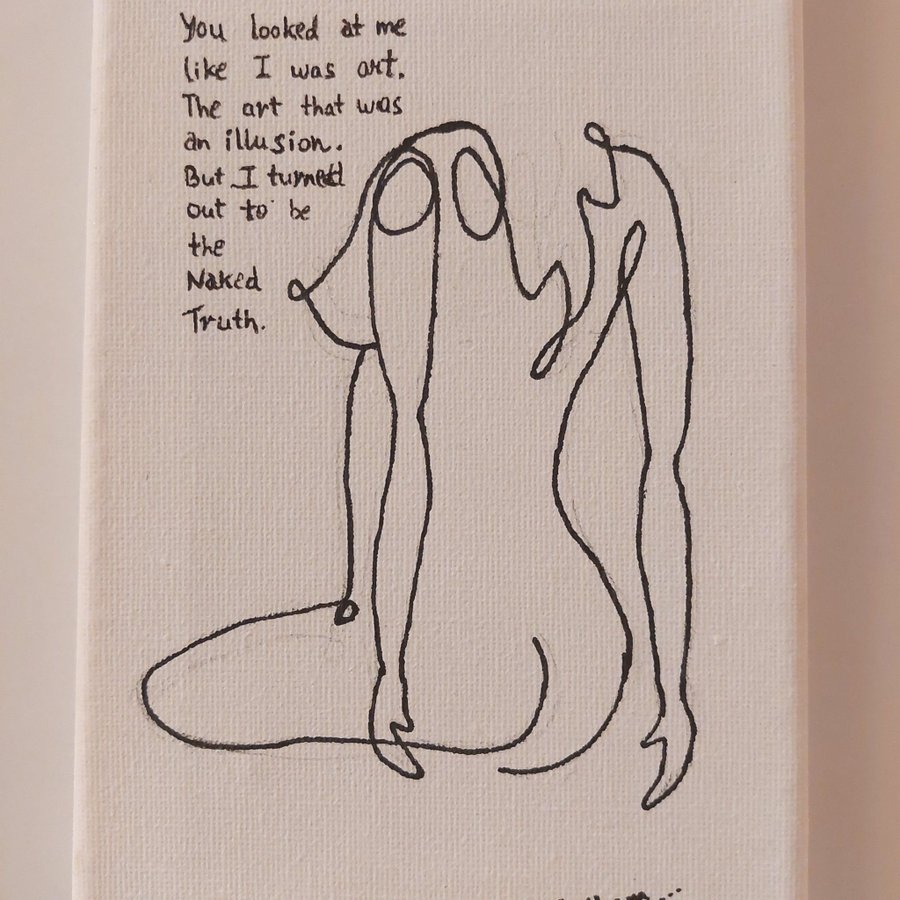 You looked at me
like I was art.
The art that was
an illusion.
But I turned
out to be
the
Naked
Truth.